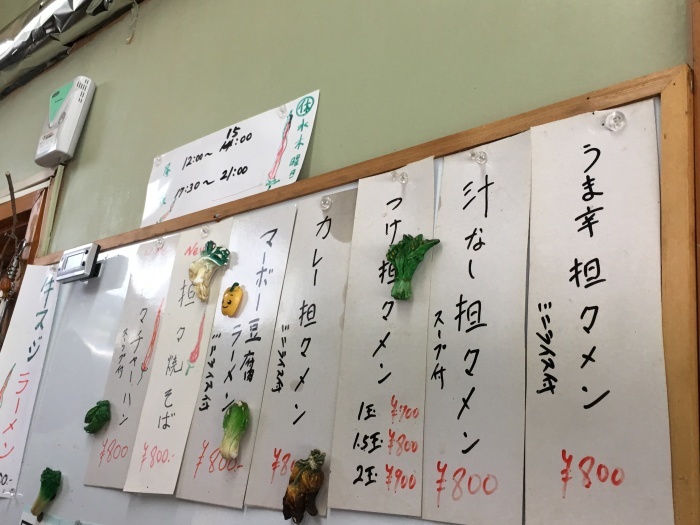 うま辛担々メン
ミニライス付
¥800
汁なし担々メン
スープ付
¥800
つけ担々メン
1玉 ¥700
1.5玉 ¥800
2玉 ¥900
カレー担々メン
ミニライス付
マーボー豆腐
ラーメン
ミニライス付
¥800.-
担々焼そば
¥800.-
チャーハン
スープ付
¥800
牛スジラーメン
12:00〜15:00
17:30〜21:00
㊡
水木曜日